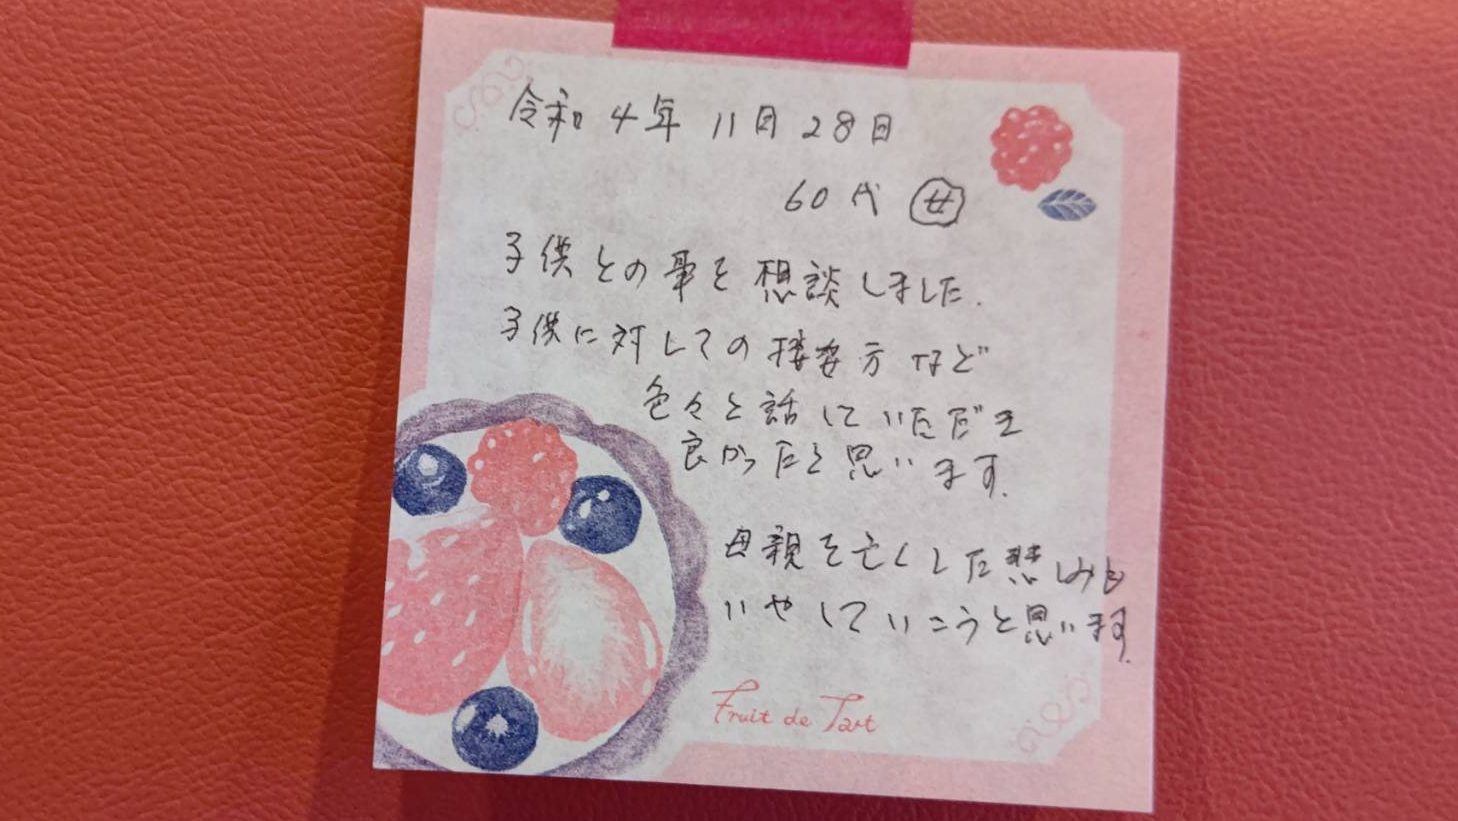 令和4年11月28日
60代 女
子供との事を想談しました.
子供に対しての接し方など
色々と話していただき
良かったと思います.
母親を亡くした悲しみも
いやしていこうと思います.
Fruit de Tart